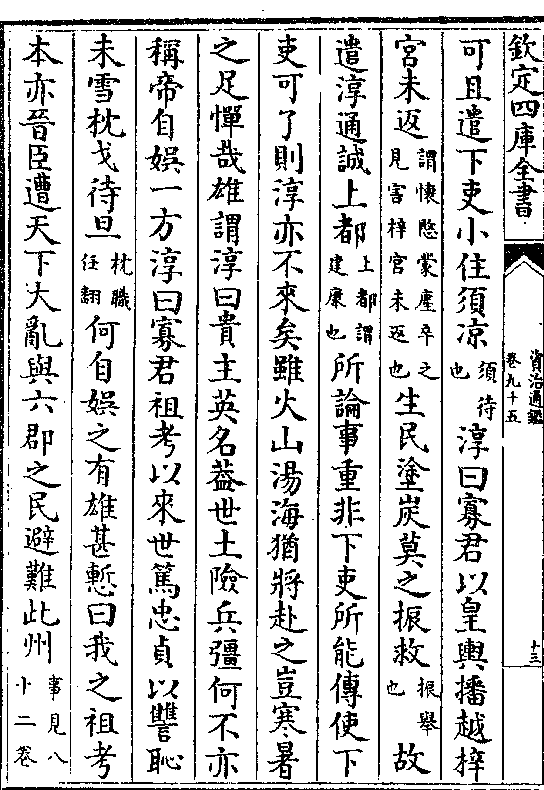 欽定四庫全書
資治通鑑
卷九十五
十三
可且遣下吏小住須凉須待也淳曰寡君以皇輿播越梓
宮未返謂懷愍蒙塵卒之見害梓宮未返也生民塗炭莫之振救振舉也故
遣淳通誠上都上都謂建康也所論事重非下吏所能傳使下
吏可了則淳亦不來矣雖火山湯海猶將赴之豈寒暑
之足憚哉雄謂淳曰貴主英名葢世土險兵彊何不亦
稱帝自娱一方淳曰寡君祖考以來世篤忠貞以讐恥
未雪枕戈待旦枕職任翻何自娱之有雄甚慙曰我之祖考
本亦晉臣遭天下大亂與六郡之民避難此州事見八十二卷